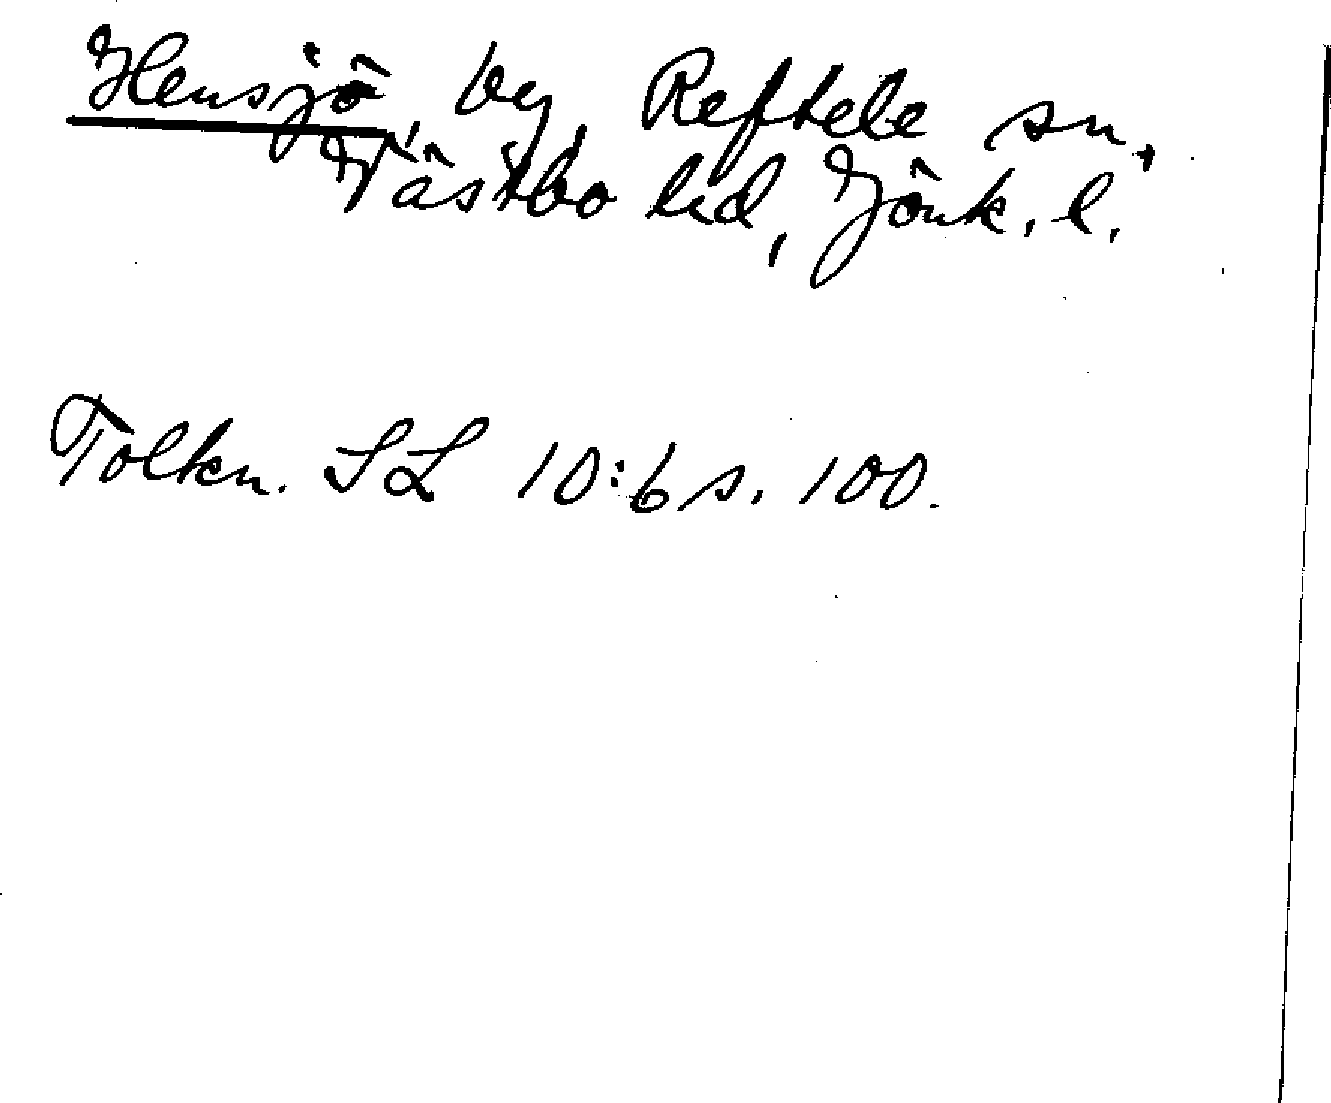 Hensjö, by, Reftele sn,
Västbo hd, Jönk. l.
Tolkn. SL 10:6 s. 100.